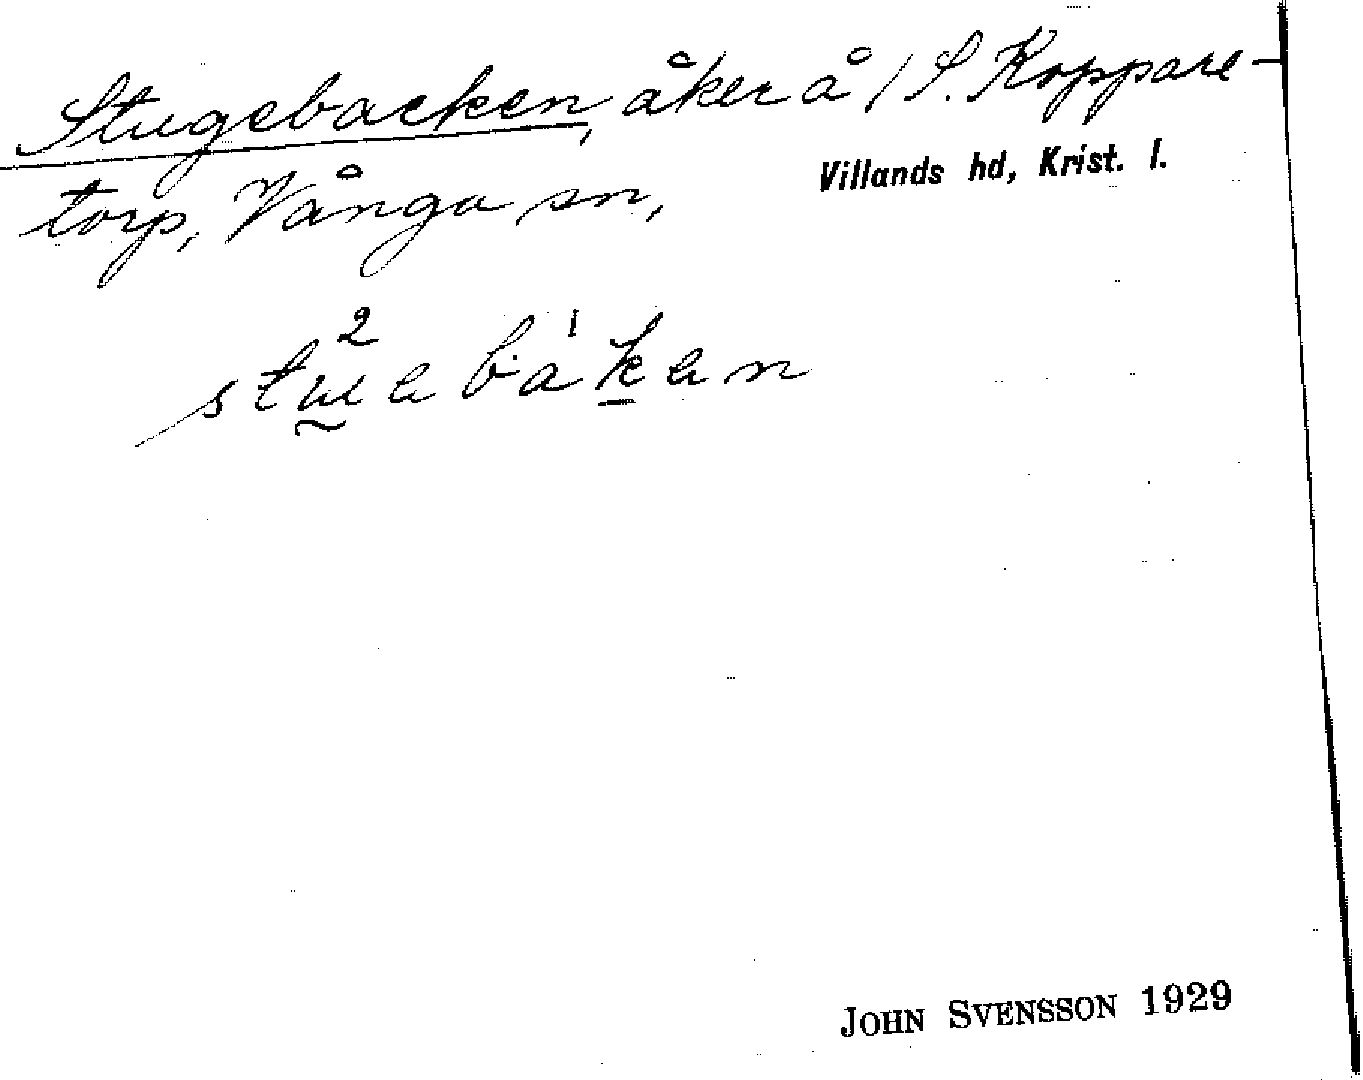 Stugebacken, åker å /S. Koppare-
torp, Vånga sn,
Villands hd, Krist. l.
JOHN SVENSSON 1929